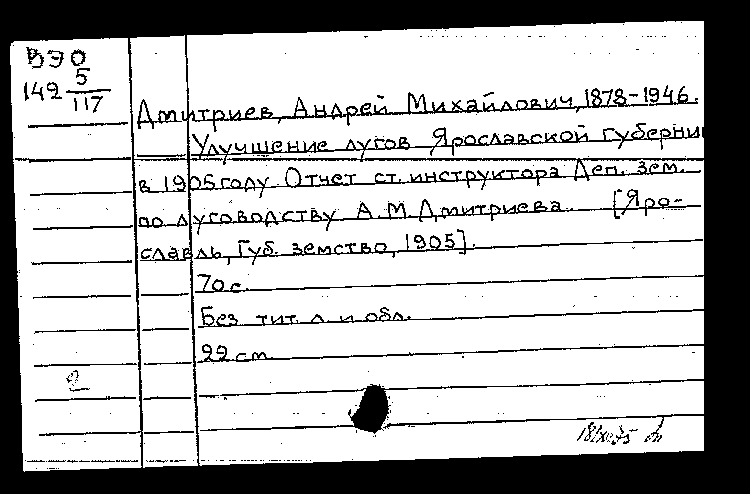 ВЭО
142 5/117
Дмитриев, Андрей Михайлович, 1878-1946.
Улучшение лугов Ярославской губернии
в 1905 году. Отчет ст. инструктора Деп. зем.
по луговодству А.М. Дмитриева. [Яро-
славль, Губ. земство, 1905].
70 с.
Без тит. л. и обл.
22 см.
2